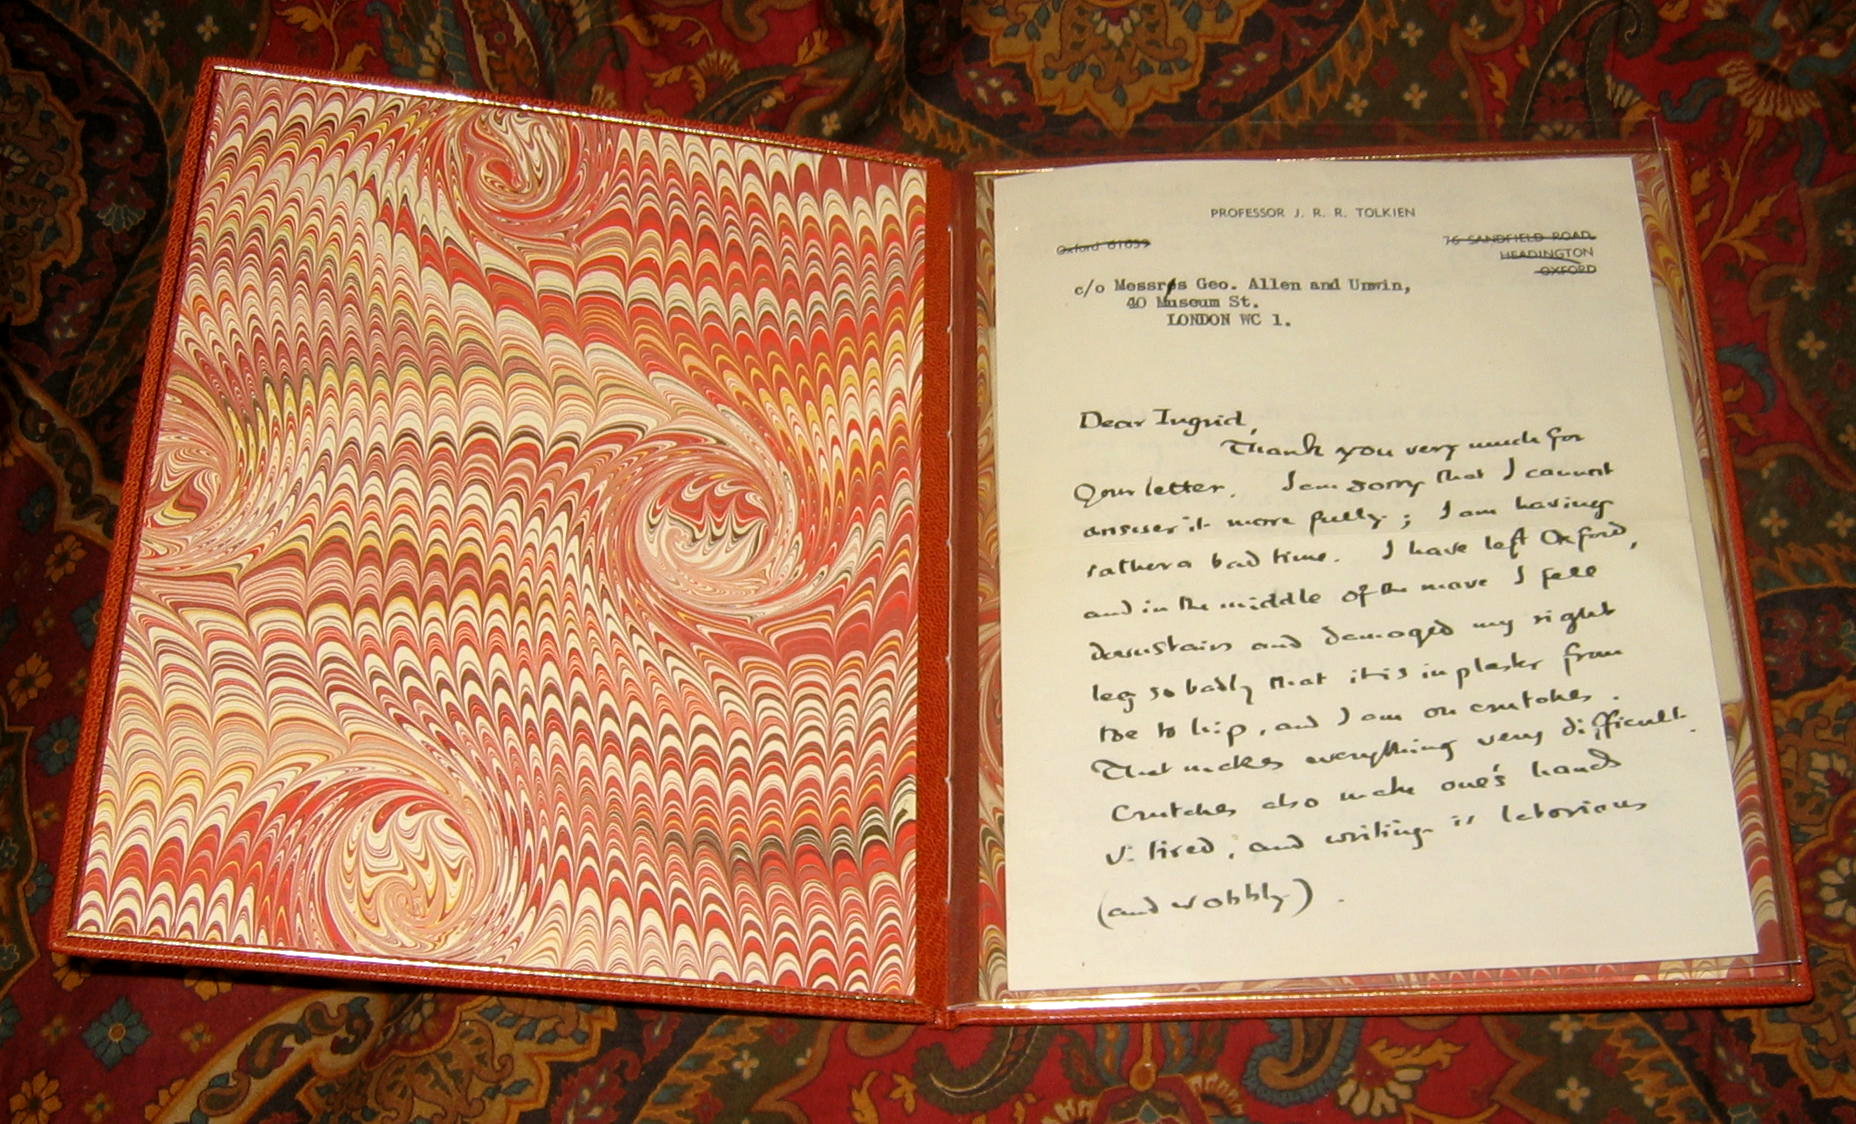 PROFESSOR J. R. R. TOLKIEN
Oxford 61639
76 SANDFIELD ROAD,
HEADINGTON
OXFORD
c/o Messrs Geo. Allen and Unwin,
40 Museum St.
LONDON WC 1.
Dear Ingrid,
Thank you very much for
your letter. I am sorry that I cannot
answer it more fully; I am having
rather a bad time. I have left Oxford,
and in the middle of the move I fell
downstairs and damaged my right
leg so badly that it is in plaster from
toe to hip, and I am on crutches.
That makes everything very difficult.
Crutches also make one's hands
v. tired; and writing is laborious
(and wobbly).